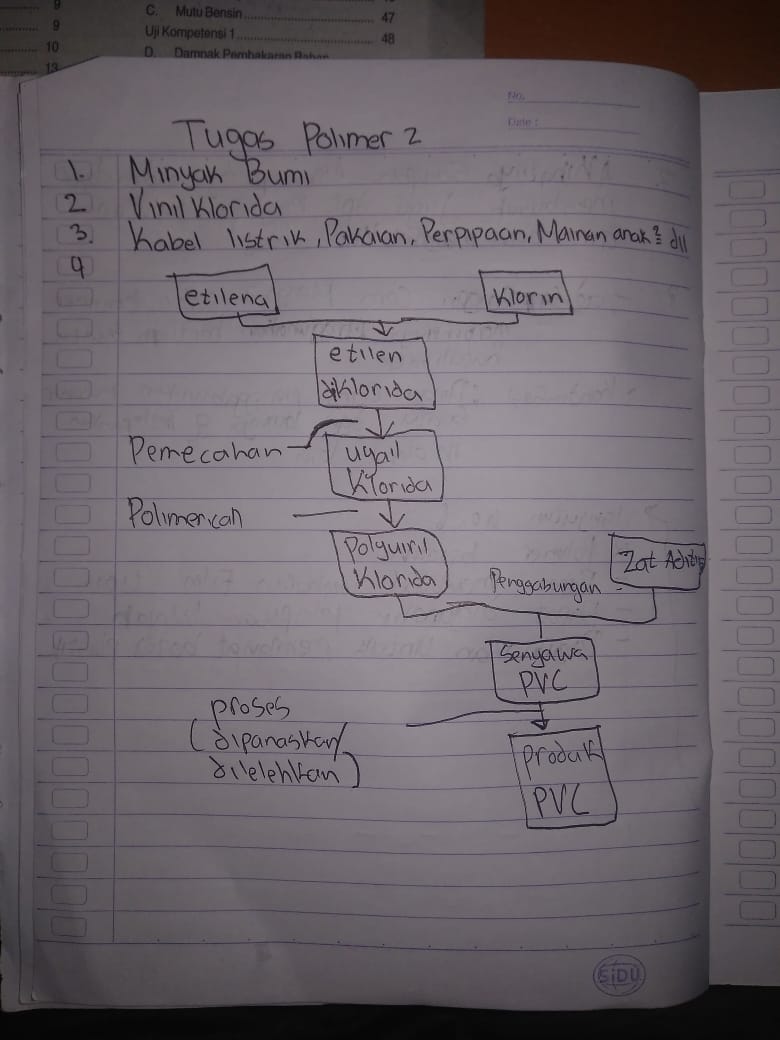 9
C. Mutu Bensin 47
9
Uji Kompetensi 1 48
10
D. Dampak Pembakaran Bahan
13
No.
Date :
Tugas Polimer 2
1. Minyak Bumi
2 Vinil Klorida
3. Kabel listrik, Pakaian, Perpipaan, Mainan anak² dll
4
etilena
Klorin
etilen
diklorida
Pemecahan
Klorida
Polimerisah
Klorida
Zat Aditip
Penggabungan
Senyawa
PVC
Proses
(dipanaskan/
dilelehkan)
Produk
PVC
SiDU